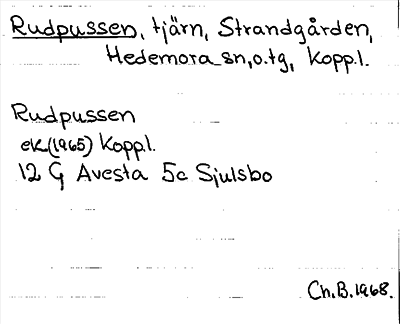 Rudpussen, tjärn, Strandgården,
Hedemora sn, o.tg, Koppl.
Rudpussen
ek(1965) Koppl.
12 G Avesta 5c Sjulsbo
Ch.B.1968.